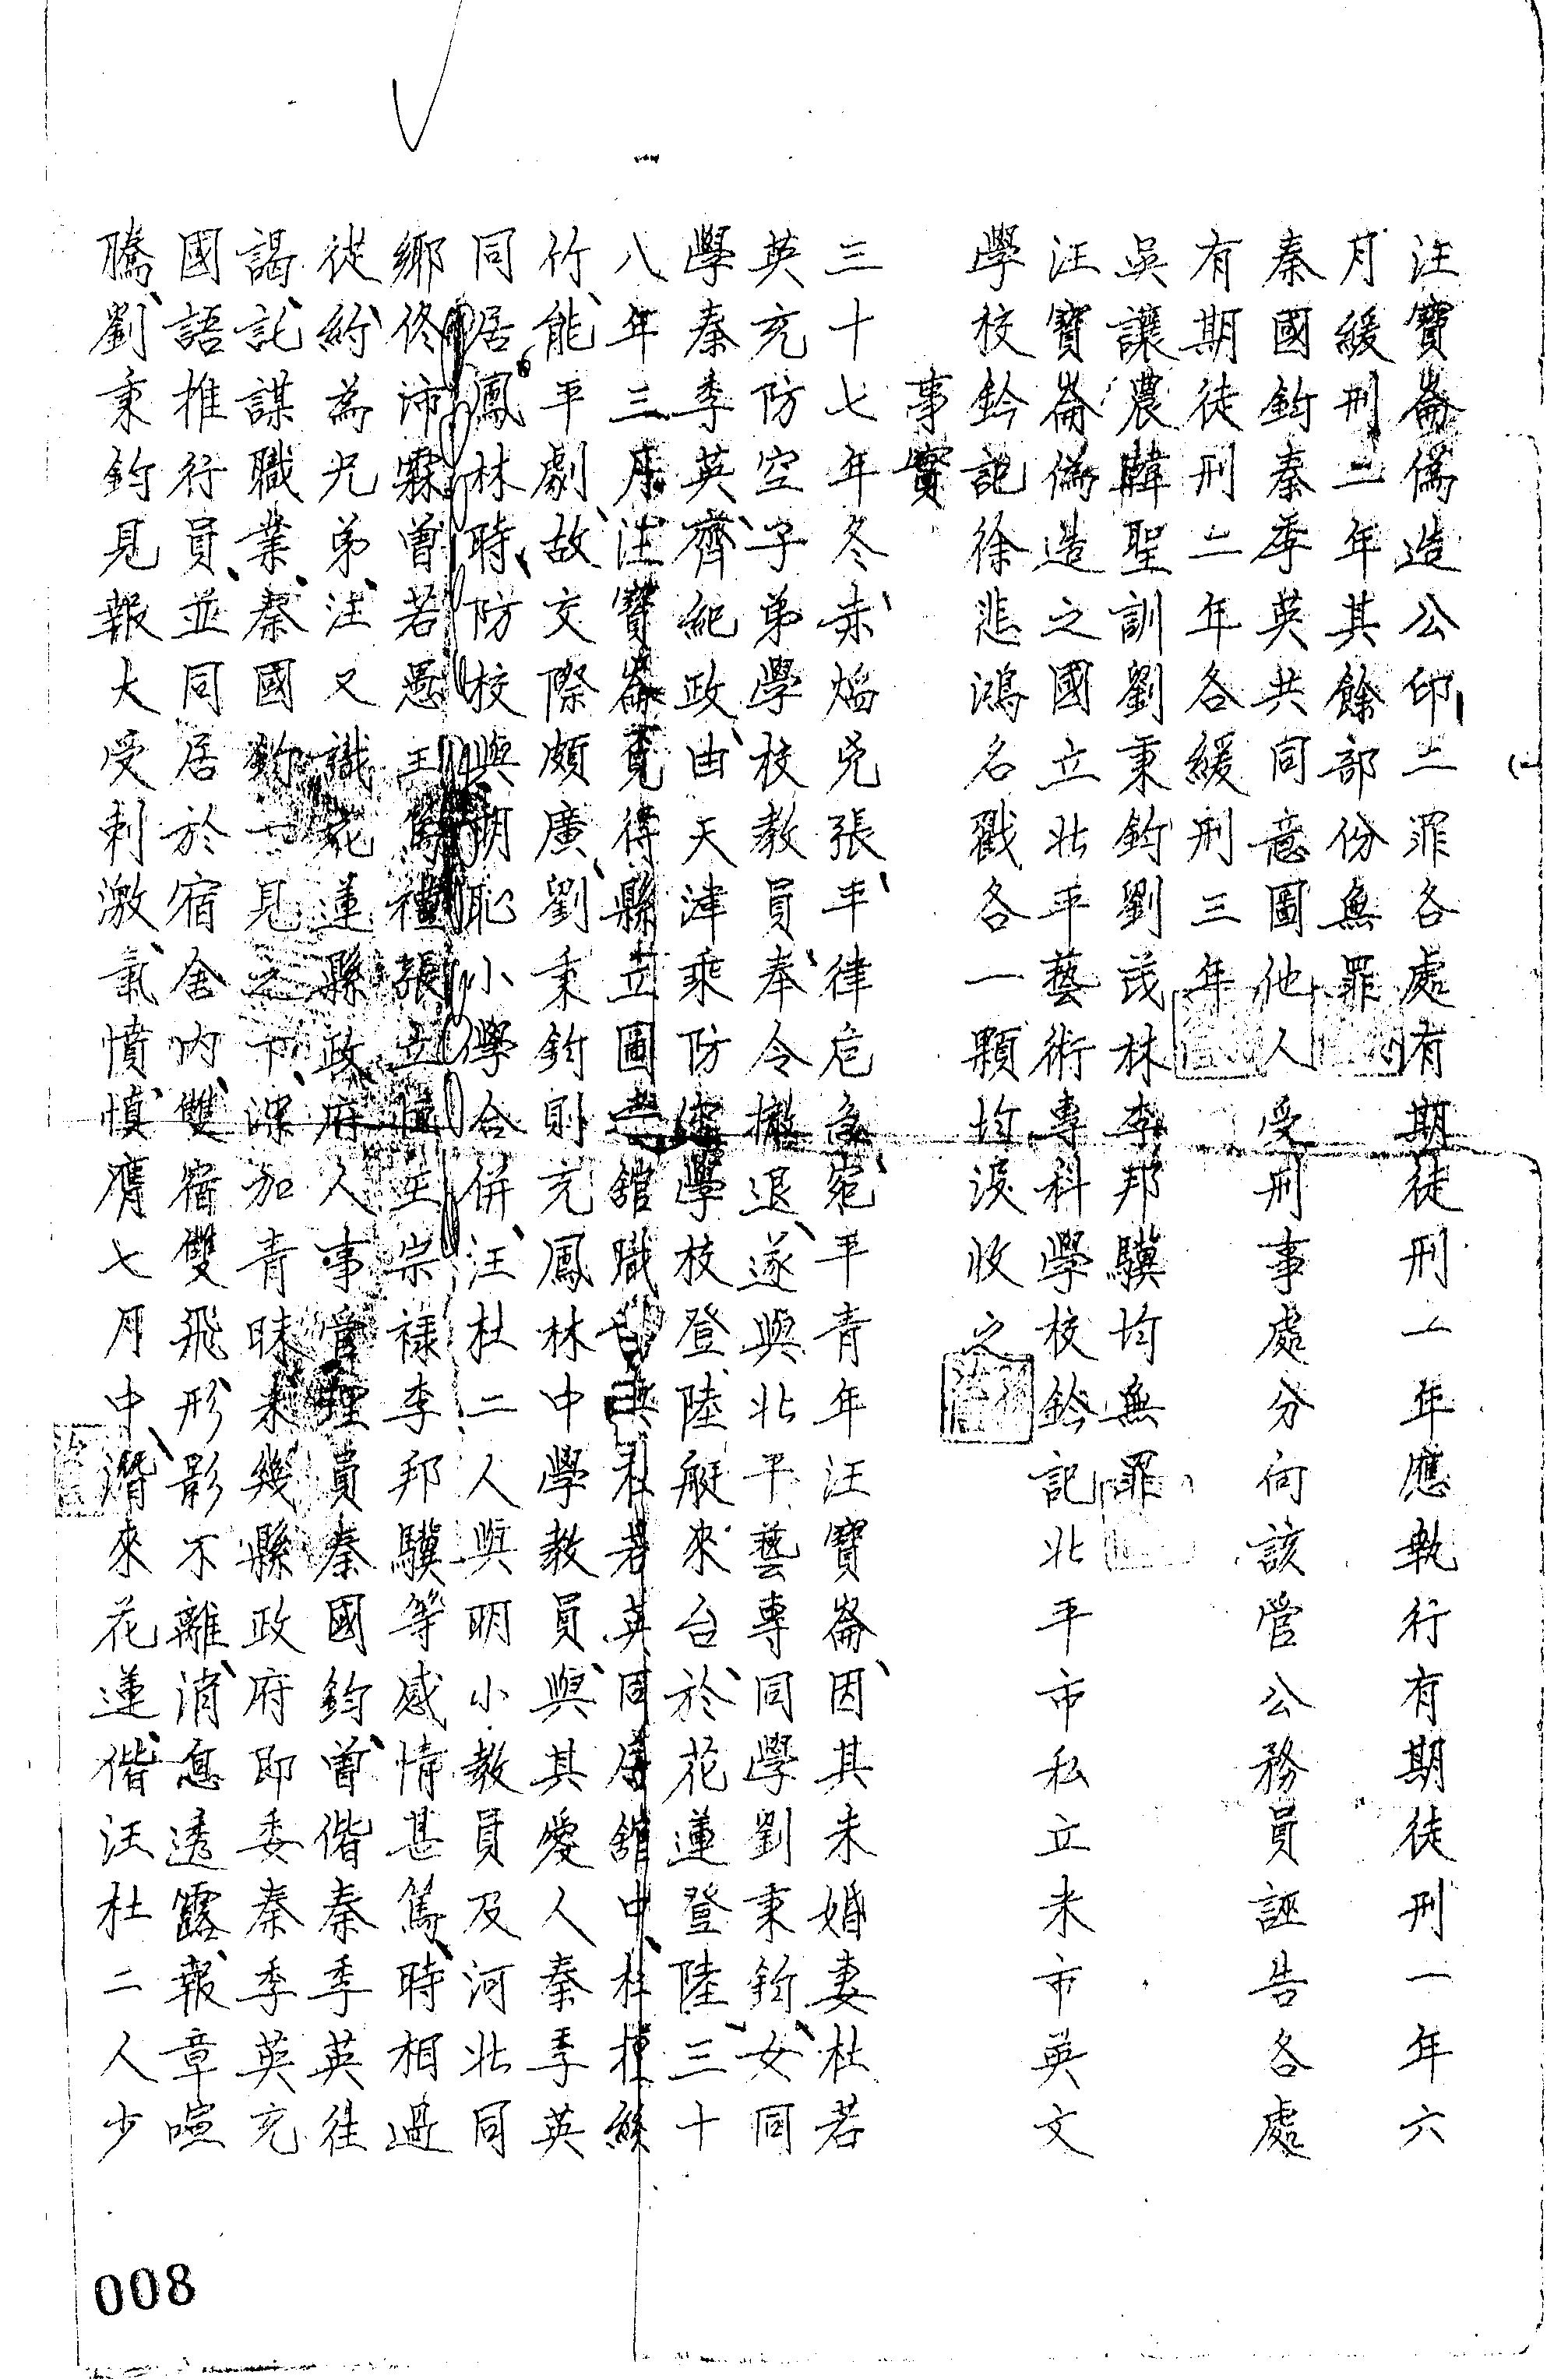 汪寶崙偽造公印二罪各處有期徒刑一年應執行有期徒刑一年六
月緩刑二年其餘部份無罪
秦國鈞秦季英共同意圖他人受刑事處分向該管公務員誣告各處
有期徒刑二年各緩刑三年
吳讓農韓聖訓劉秉鈞劉茂林李邦驥均無罪
汪寶崙偽造之國立北平藝術專科學校鈐記北平市私立未市英文
學校鈐記徐悲鴻名戳各一顆均沒收之
事實
三十七年冬赤焰兇張平津危急宛平青年汪寶崙因其未婚妻杜若
英充防空子弟學校教員奉令撤退遂與北平藝專同學劉秉鈞女同
學秦季英齊紀政由天津乘防空學校登陸艇來台於花蓮登陸三十
八年三月汪寶崙覓得縣立圖書舘職員與杜若英同居舘中杜擅絲
竹能平劇故交際頗廣劉秉鈞則充鳳林中學教員與其愛人秦季英
同居鳳林時防校與明恥小學合併汪杜二人與明小教員及河北同
鄉佟沛霖曾若愚王 禮張立恒王宗祿李邦驥等感情甚篤時相過
從約為兄弟汪又識花蓮縣政府人事管理員秦國鈞曾偕秦季英往
謁託謀職業秦國鈞一見之下深加青睞未幾縣政府即委秦季英充
國語推行員並同居於宿舍內雙宿雙飛形影不離消息透露報章喧
騰劉秉鈞見報大受刺激氣憤填膺七月中潛來花蓮偕汪杜二人少
008